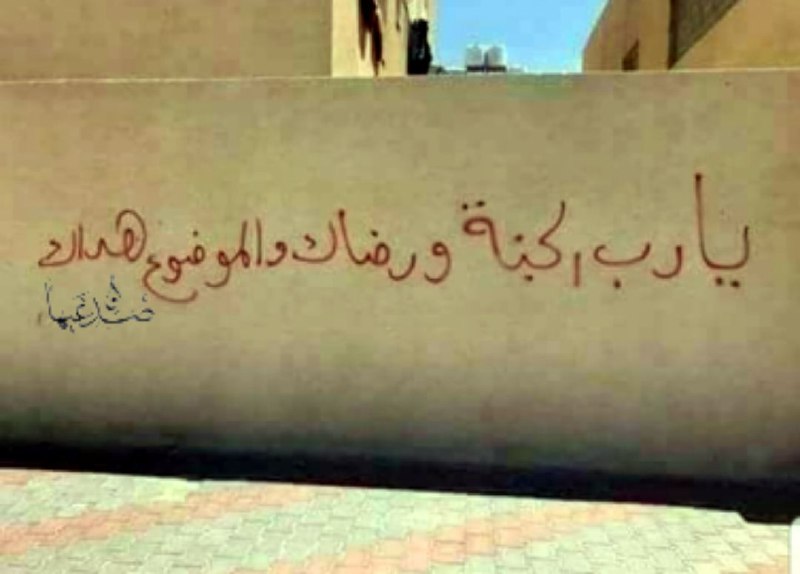 يارب الجنة ورضاك والموضوع هداك